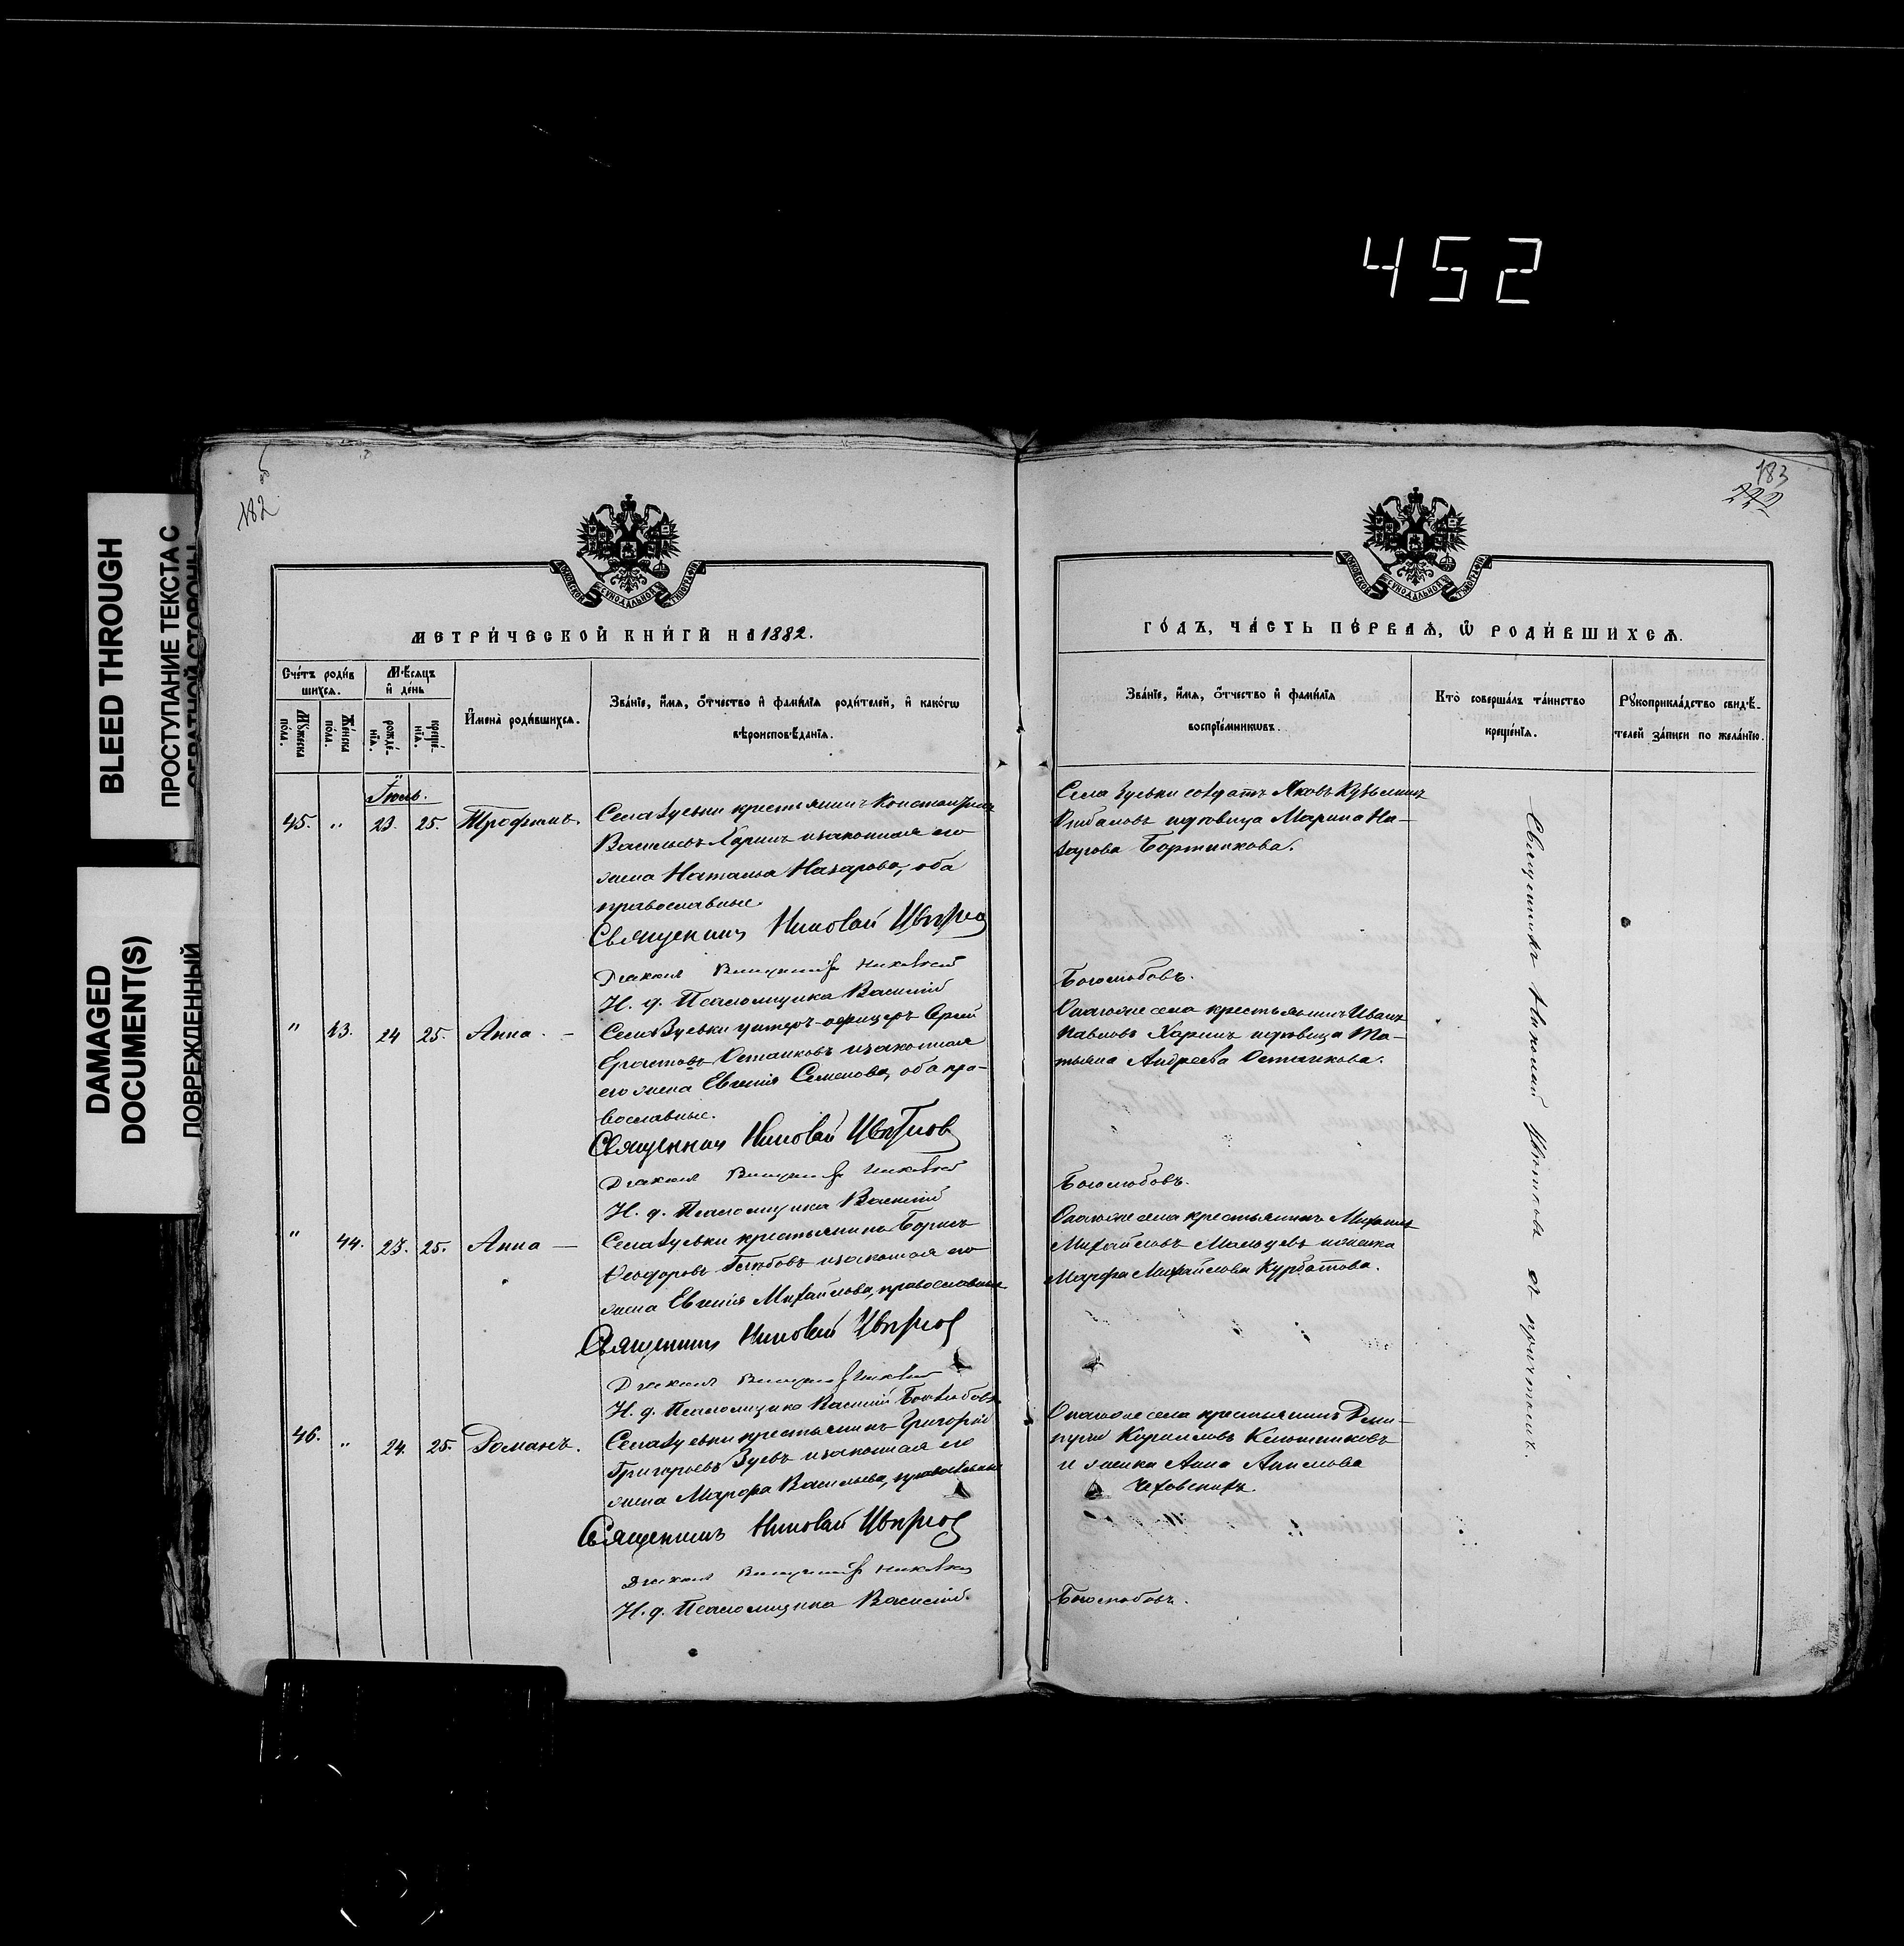 452
BLEED THROUGH
ПРОСТУПАНИЕ ТЕКСТА С
ОБРАТНОЙ СТОРОНЫ
DAMAGED
DOCUMENT(S)
ПОВРЕЖДЕННЫЙ
182
МЕТРИ́ЧЕСКОЙ КНИ́ГИ НА 1882.
Сче́тъ роди́в
шихся.
Мѣсяцъ
и де́нь
Му́жеска
по́ла.
Же́нска
по́ла.
рожде́-
нїя.
креще́-
нїя.
Имена̀ роди́вшихся.
Зва́нїе, и́мя, о́тчество и фами́лїя роди́телей, и како́гѡ
вѣроисповѣданїя.
Іюль.
45. " 23. 25. Трофимъ.
Села Зуевки крестьянинъ Константинъ
Васильевъ Харинъ и законная его
жена Наталья Назарова, оба
православные.
Священникъ Николай Цвѣтков
Діаконъ
И. д. Псаломщика Василій
" 43. 24 25. Анна. –
Села Зуевки унтеръ-офицеръ Сергѣй
Останковъ и законная
его жена Евгенія Семенова, оба пра-
вославные.
Священникъ Николай Цвѣтков
Діаконъ
И. д. Псаломщика Василій
" 44. 23. 25. Анна –
Села Зуевки крестьянинъ Борисъ
Ѳеодоровъ и законная его
жена Евгенія Михайлова, православные
Священникъ Николай Цвѣтков
Діаконъ
И. д. Псаломщика Василій Боголюбовъ
46. " 24. 25. Романъ.
Села Зуевки крестьянинъ Григорій
Григорьевъ Зуевъ и законная его
жена Марфа Васильева, православные
Священникъ Николай Цвѣтков
Діаконъ
И. д. Псаломщика Василій
183
222
ГО́ДЪ, ЧА́СТЬ ПЕ́РВАЯ, Ѡ РОДИ́ВШИХСЯ.
Зва́нїе, и́мя, о́тчество и фами́лїя
воспрїе́мникѡвъ.
Кто̀ соверша́лъ та́инство
креще́нїя.
Рукоприкла́дство свидѣ́-
телей за́писи по жела́нїю.
Села Зуевки солдатъ Яковъ
и дѣвица Марина На-
зарова Бортникова.
Боголюбовъ.
Онагоже села крестьянинъ Иванъ
Павловъ Харинъ и дѣвица Та-
тьяна Андреева Останкова.
Боголюбовъ.
Онагоже села крестьянинъ Михаилъ
Михайловъ Мальцевъ и женка
Марфа Михайлова Курбатова.
Онагоже села крестьянинъ Дми-
трій Кирилловъ Ключниковъ
и женка Анна Акимова
Чеховскихъ.
Боголюбовъ.
Священникъ Николай Цвѣтковъ съ причтомъ.